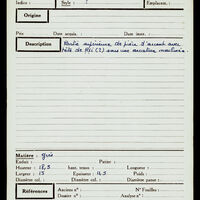 Indice : Style : ? Emplacem. :
Origine
Prix Date acquis. : Date inst. :
Description Partie supérieure de pièce d'accent avec
tête de (?) sous une arcature
Matière : grès
Enduit : Patine :
Hauteur : 18,5 haut. tenon : Longueur :
Largeur : 15 Epaisseur : 16,5 Poids :
Diamètre col. : Diamètre col. : Diamètre panse :
Références Anciens nos : No Fouilles :
Dossier no : Analyse no :